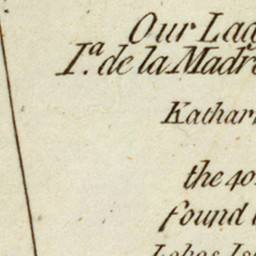 Our Lad
I.ª de la Madre
Kathar
the 40
found
Lobos Isl